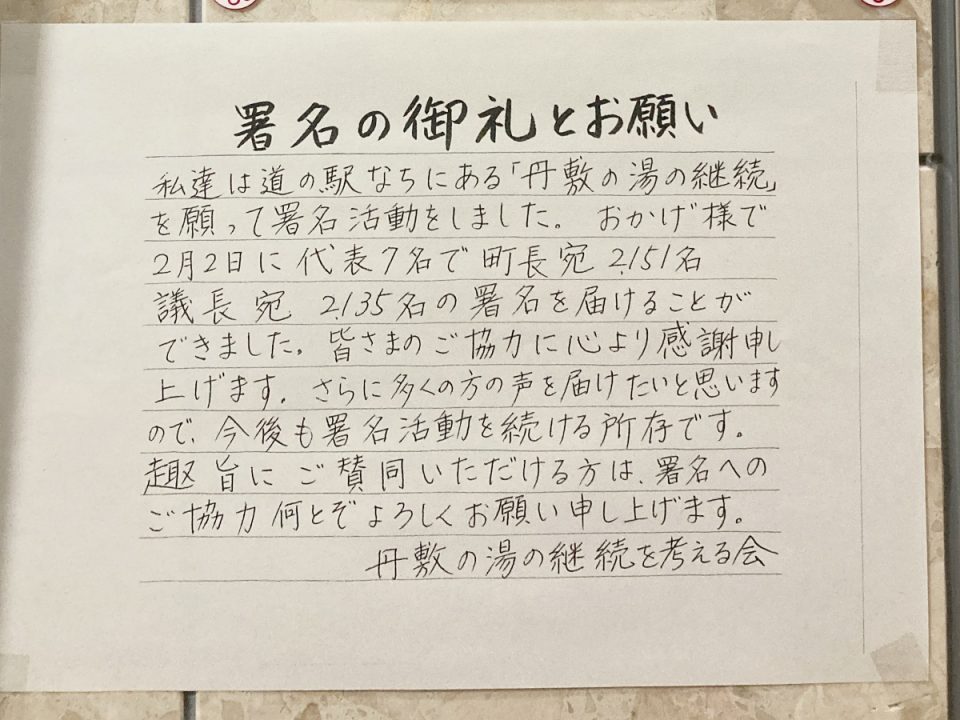 署名の御礼とお願い
私達は道の駅なちにある「丹敷の湯の継続」
を願って署名活動をしました。 おかげ様で
2月2日に代表7名で町長宛 2,151名
議長宛 2,135名の署名を届けることが
できました。皆さまのご協力に心より感謝申し
上げます。さらに多くの方の声を届けたいと思います
ので、今後も署名活動を続ける所存です。
趣旨にご賛同いただける方は、署名への
ご協力何とぞよろしくお願い申し上げます。
丹敷の湯の継続を考える会